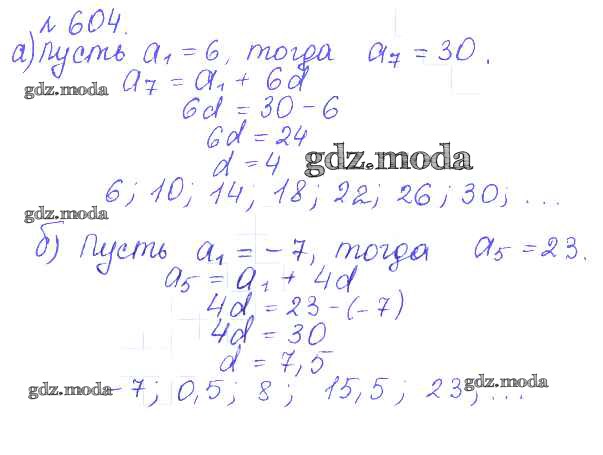 № 604.
а) Пусть a₁ = 6, тогда a₇ = 30.
a₇ = a₁ + 6d
gdz.moda
6d = 30 - 6
6d = 24
d = 4
gdz.moda
6; 10; 14; 18; 22; 26; 30; ...
gdz.moda
б) Пусть a₁ = -7, тогда a₅ = 23.
a₅ = a₁ + 4d
4d = 23 - (-7)
4d = 30
d = 7,5
gdz.moda -7; 0,5; 8; 15,5; 23; ...
gdz.moda